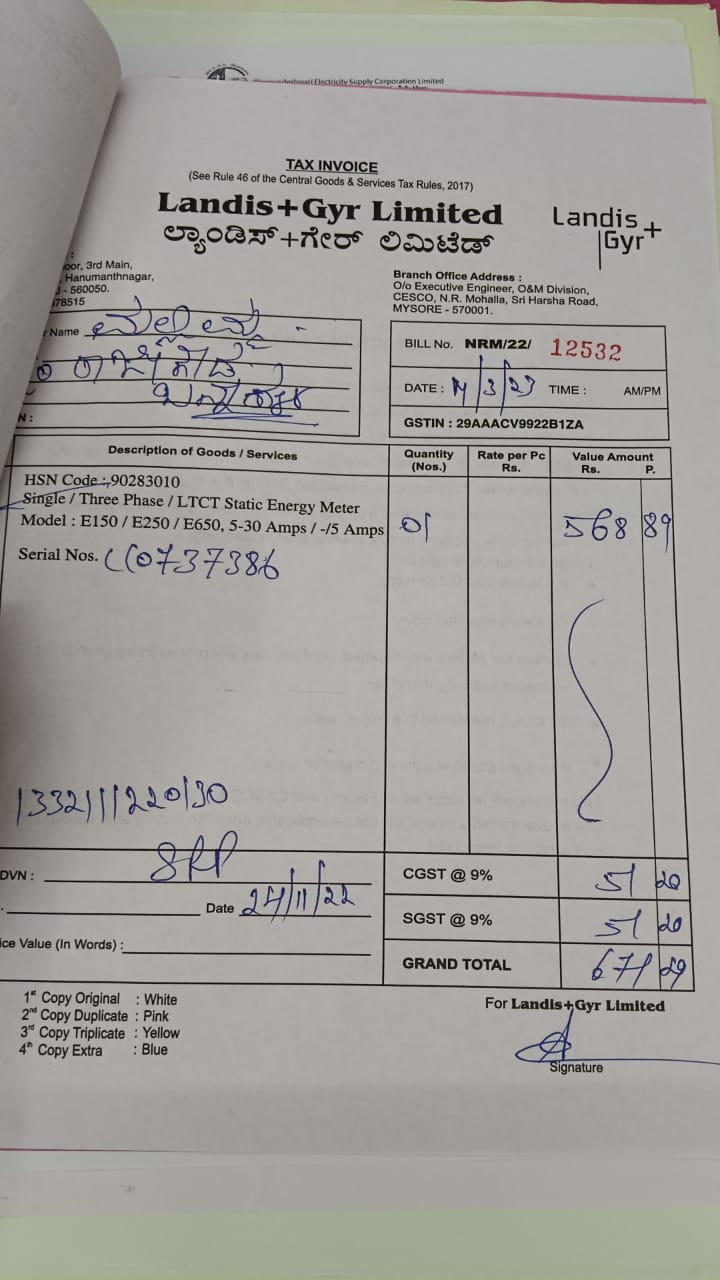 deshwari Electricity Supply Corporation Limited
TAX INVOICE
(See Rule 46 of the Central Goods & Services Tax Rules, 2017)
Landis+Gyr Limited
ಲ್ಯಾಂಡಿಸ್+ಗೇರ್ ಲಿಮಿಟೆಡ್
Landis+
Gyr
:
oor, 3rd Main,
Hanumanthnagar,
- 560050.
78515
Branch Office Address :
O/o Executive Engineer, O&M Division,
CESCO, N.R. Mohalla, Sri Harsha Road,
MYSORE - 570001.
r Name
N :
BILL No. NRM/22/ 12532
DATE : /3/23 TIME : AM/PM
GSTIN : 29AAACV9922B1ZA
Description of Goods / Services Quantity (Nos.) Rate per Pc Rs. Value Amount Rs. P.
HSN Code :-90283010
Single / Three Phase / LTCT Static Energy Meter
Model : E150 / E250 / E650, 5-30 Amps / -/5 Amps 01 568 89
Serial Nos. 0737386
DVN :
Date 24/11/22
ice Value (In Words) :
CGST @ 9% 51 20
SGST @ 9% 51 20
GRAND TOTAL 671 29
1st Copy Original : White
2nd Copy Duplicate : Pink
3rd Copy Triplicate : Yellow
4th Copy Extra : Blue
For Landis+Gyr Limited
Signature